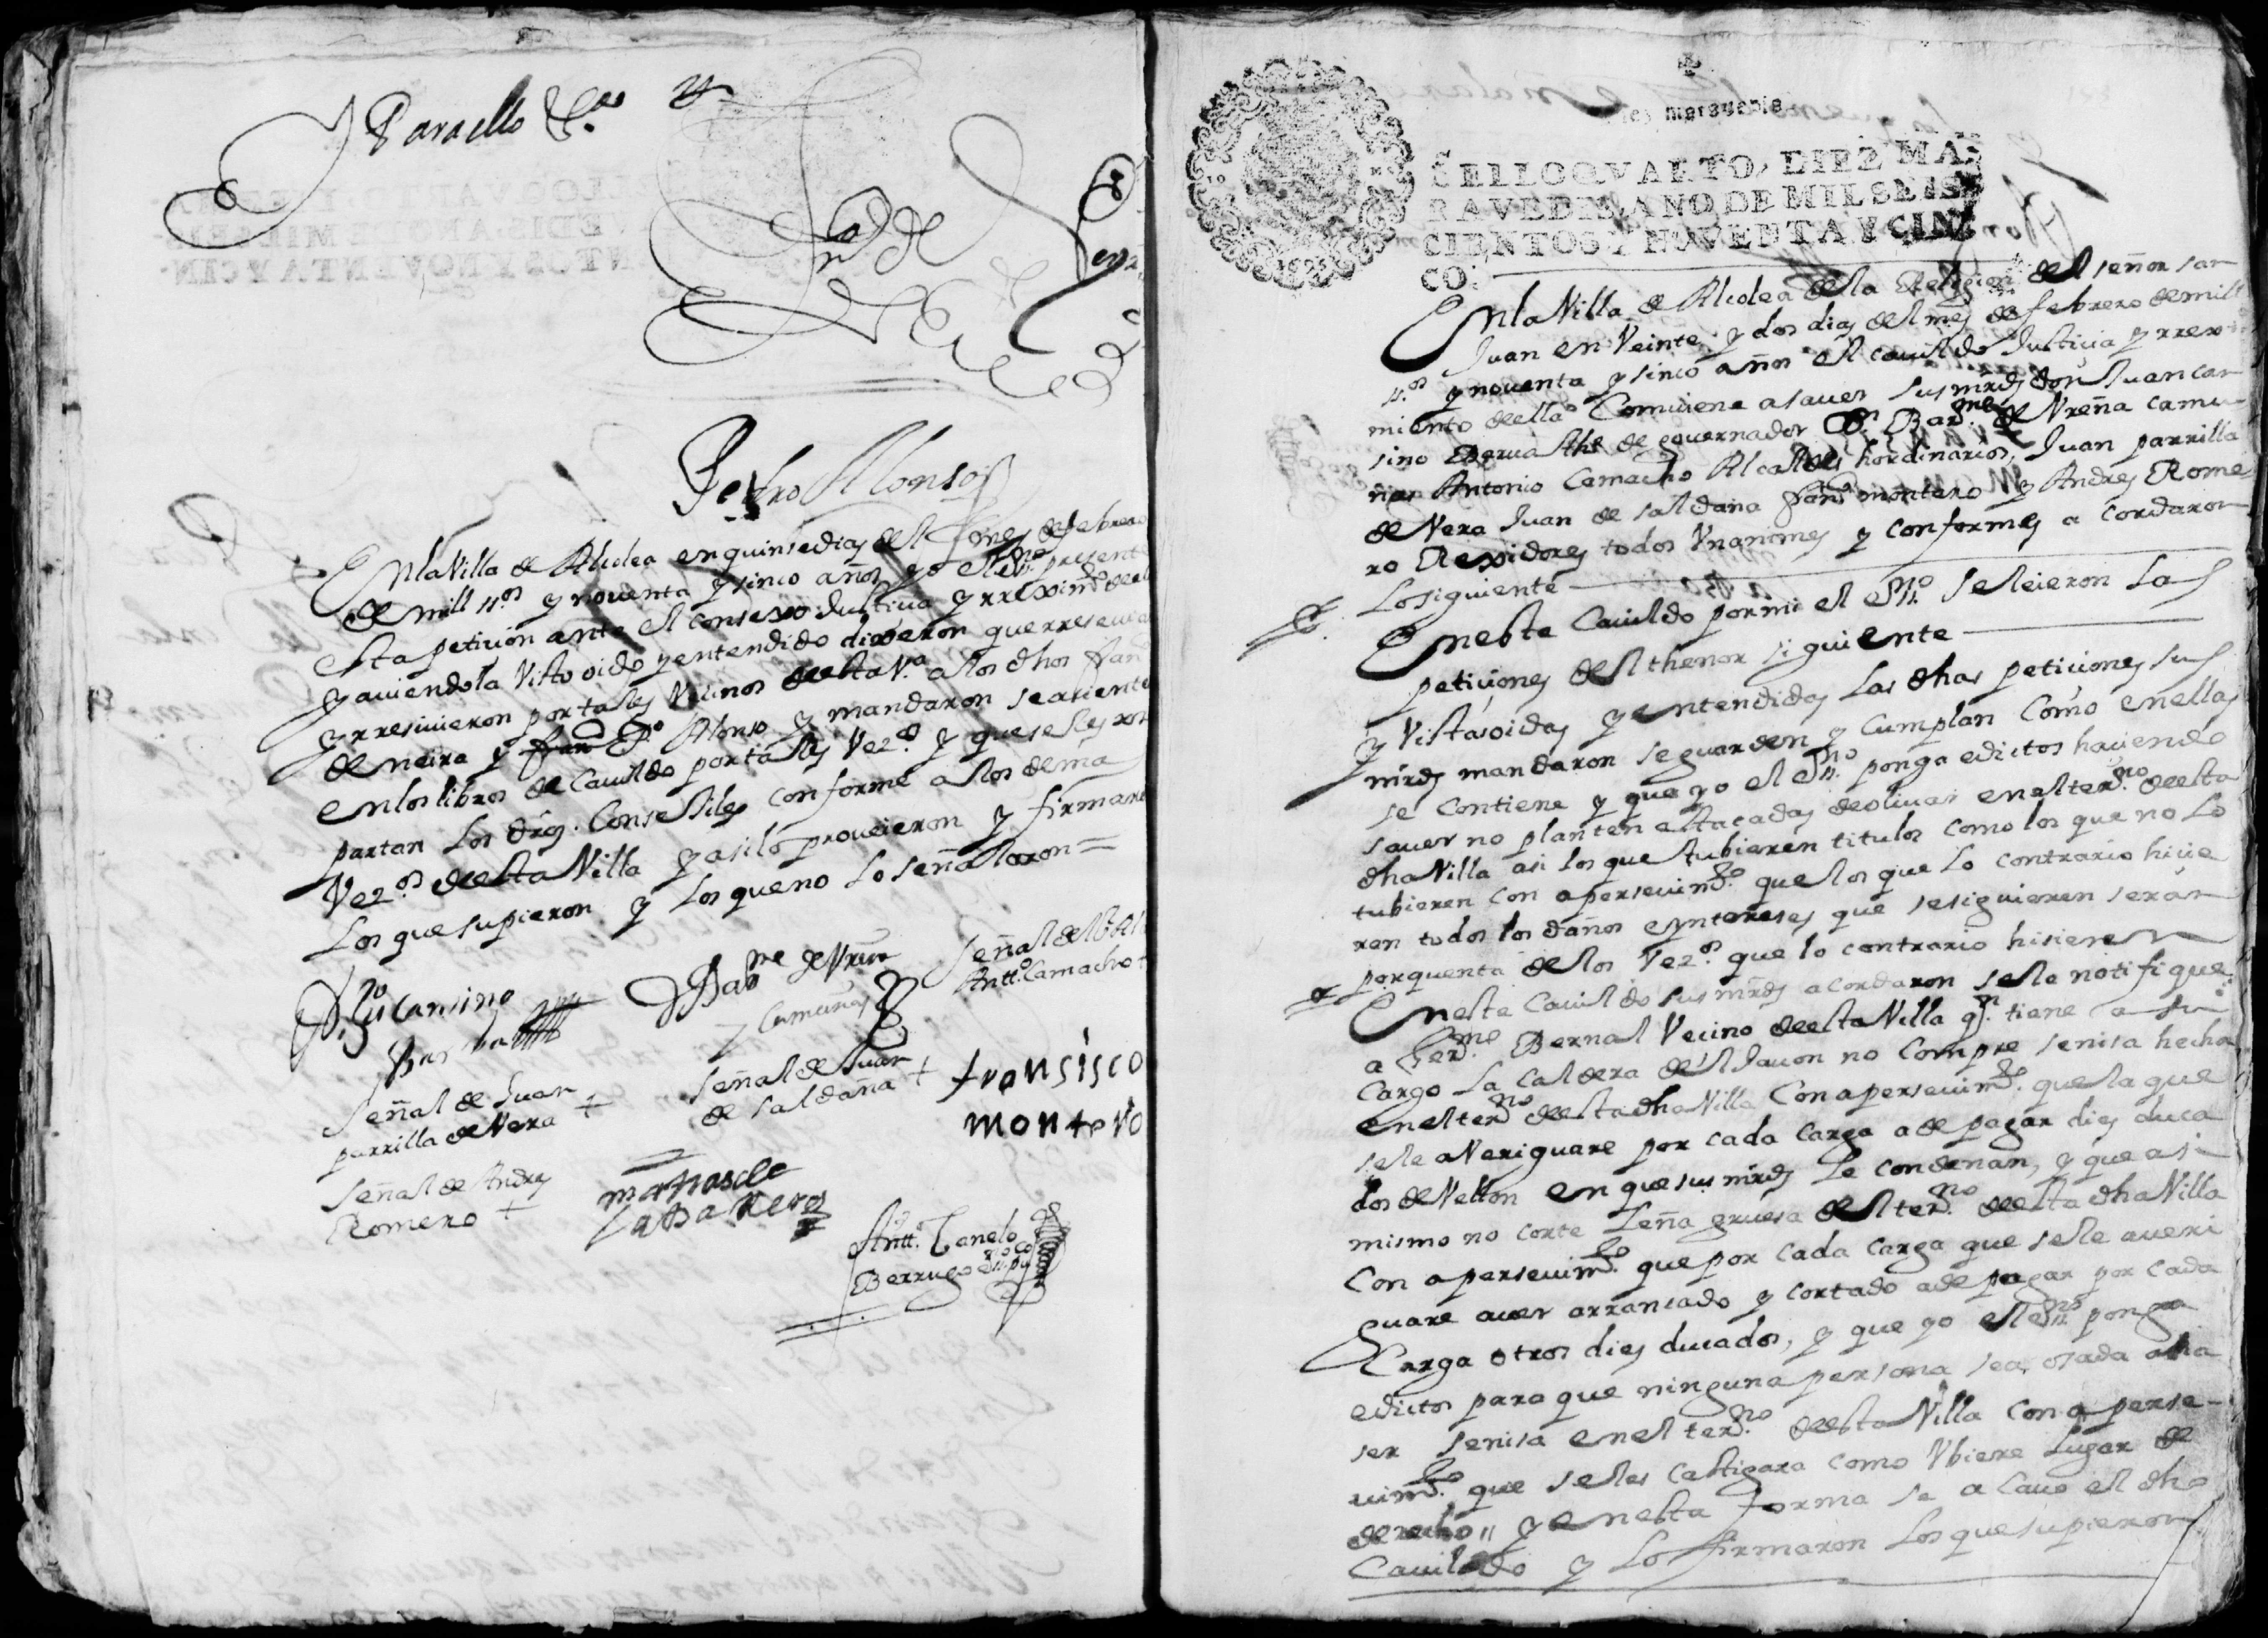 Para ello &.ª
Pedro Alonso
En la Villa de Alcolea en quinse dias del mes de febrero
de mill ss.os y nouenta y sinco años yo el es.no presente
esta peticion ante el consexo Justicia y rreximi.to de ella
y auiendola Visto oido y entendido dixeron que rreseuian
y rresiuieron por tales Vecinos de esta V.a a los dhos fran.co
de neira y P.o Alonso y mandaron se asienten
en los libros de Cauildo por tales Vez.os y que se les rre
partan los dros. Consejiles conforme a los demas
Vez.os de esta Villa y asi lo proueieron y firmaron
Los que supieron y los que no lo señalaron =
D. Ju.o Cansino
Barba
D Bar.me de Vreña
y Camuñas
Señal de Al
Antt.o Camacho +
Señal de Juan
parrilla de Vera +
Señal de Juan
de saldaña +
fransisco
montero
Señal de Andres
Romero +
matias de
Labakeros
Antt.o Canelo
Berrugo es.no pu.co
diez marauedis
SELLO QVARTO, DIEZ MA-
RAVEDIS, AÑO DE MIL SEIS-
CIENTOS Y NOVENTA Y CIN-
CO.
En la Villa de Alcolea de la Relixion del señor san
Juan en Veinte y dos dias del mes de febrero de mill
ss.os y nouenta y sinco años el cauildo Justicia y rrexi
miento de ella Comuiene a sauer sus mrds don Juan can
sino Barua the de gouernador D.n Bar.me de Vreña camu
ñas Antonio Camacho Alcaldes hordinarios, Juan parrilla
de Vera Juan de saldaña fran.co montero y Andres Rome
ro Rexidores todos Vnanimes y conformes acordaron
Lo siguiente
En este Cauildo por mi el es.no se leieron las
peticiones del thenor siguiente
y Vistas oidas y entendidas las dhas peticiones sus
mrds mandaron se guarden y Cumplan Como en ellas
se Contiene y que yo el es.no ponga edictos haciendo
sauer no planten estacadas de oliuar en el ter.no de esta
dha Villa asi los que tubieren titulos como los que no lo
tubieren con aperseuim.to que los que lo contrario hicie
ren todos los daños e yntereses que se siguieren seran
por quenta de los Vez.os que lo contrario hisieren
En este Cauildo sus mrds acordaron se le notifique
a Ger.mo Bernal Vecino de esta Villa q.n tiene a su
Cargo La Caldera del Jauon no Compre senisa hecha
en el ter.no de esta dha Villa Con aperseuim.to que la que
se le aVeriguare por cada Carga a de pagar dies duca
dos de Vellon en que sus mrds le condenan, y que asi
mismo no corte Leña gruesa del ter.no de esta dha Villa
Con aperseuim.to que por cada Carga que se le aueri
guare auer arrancado y cortado a de pagar por cada
Carga otros dies ducados, y que yo el es.no ponga
edictos para que ninguna persona sea osada a ha
ser senisa en el ter.no de esta Villa con aperse-
uim.to que se les castigara como Vbiere lugar de
derecho y en esta forma se acauo el dho
Cauildo y Lo firmaron los que supieron